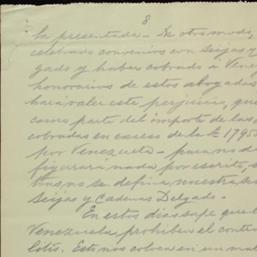 8
la presentada - De otro modo,
celebrado convenios con Seijas y
gado y haber cobrado a Vene
honorarios de estos abogados
hará valer este perjuicio, que
como parte del importe de las
cobradas en exceso de la £ 1795
por Venezuela - para no de
figurará nada por escrito, s
no se define nuestra
Seijas y Cadenas Delgado.
En estos días supe que
Venezuela, prohiben el contr
Esto nos coloca en un mal